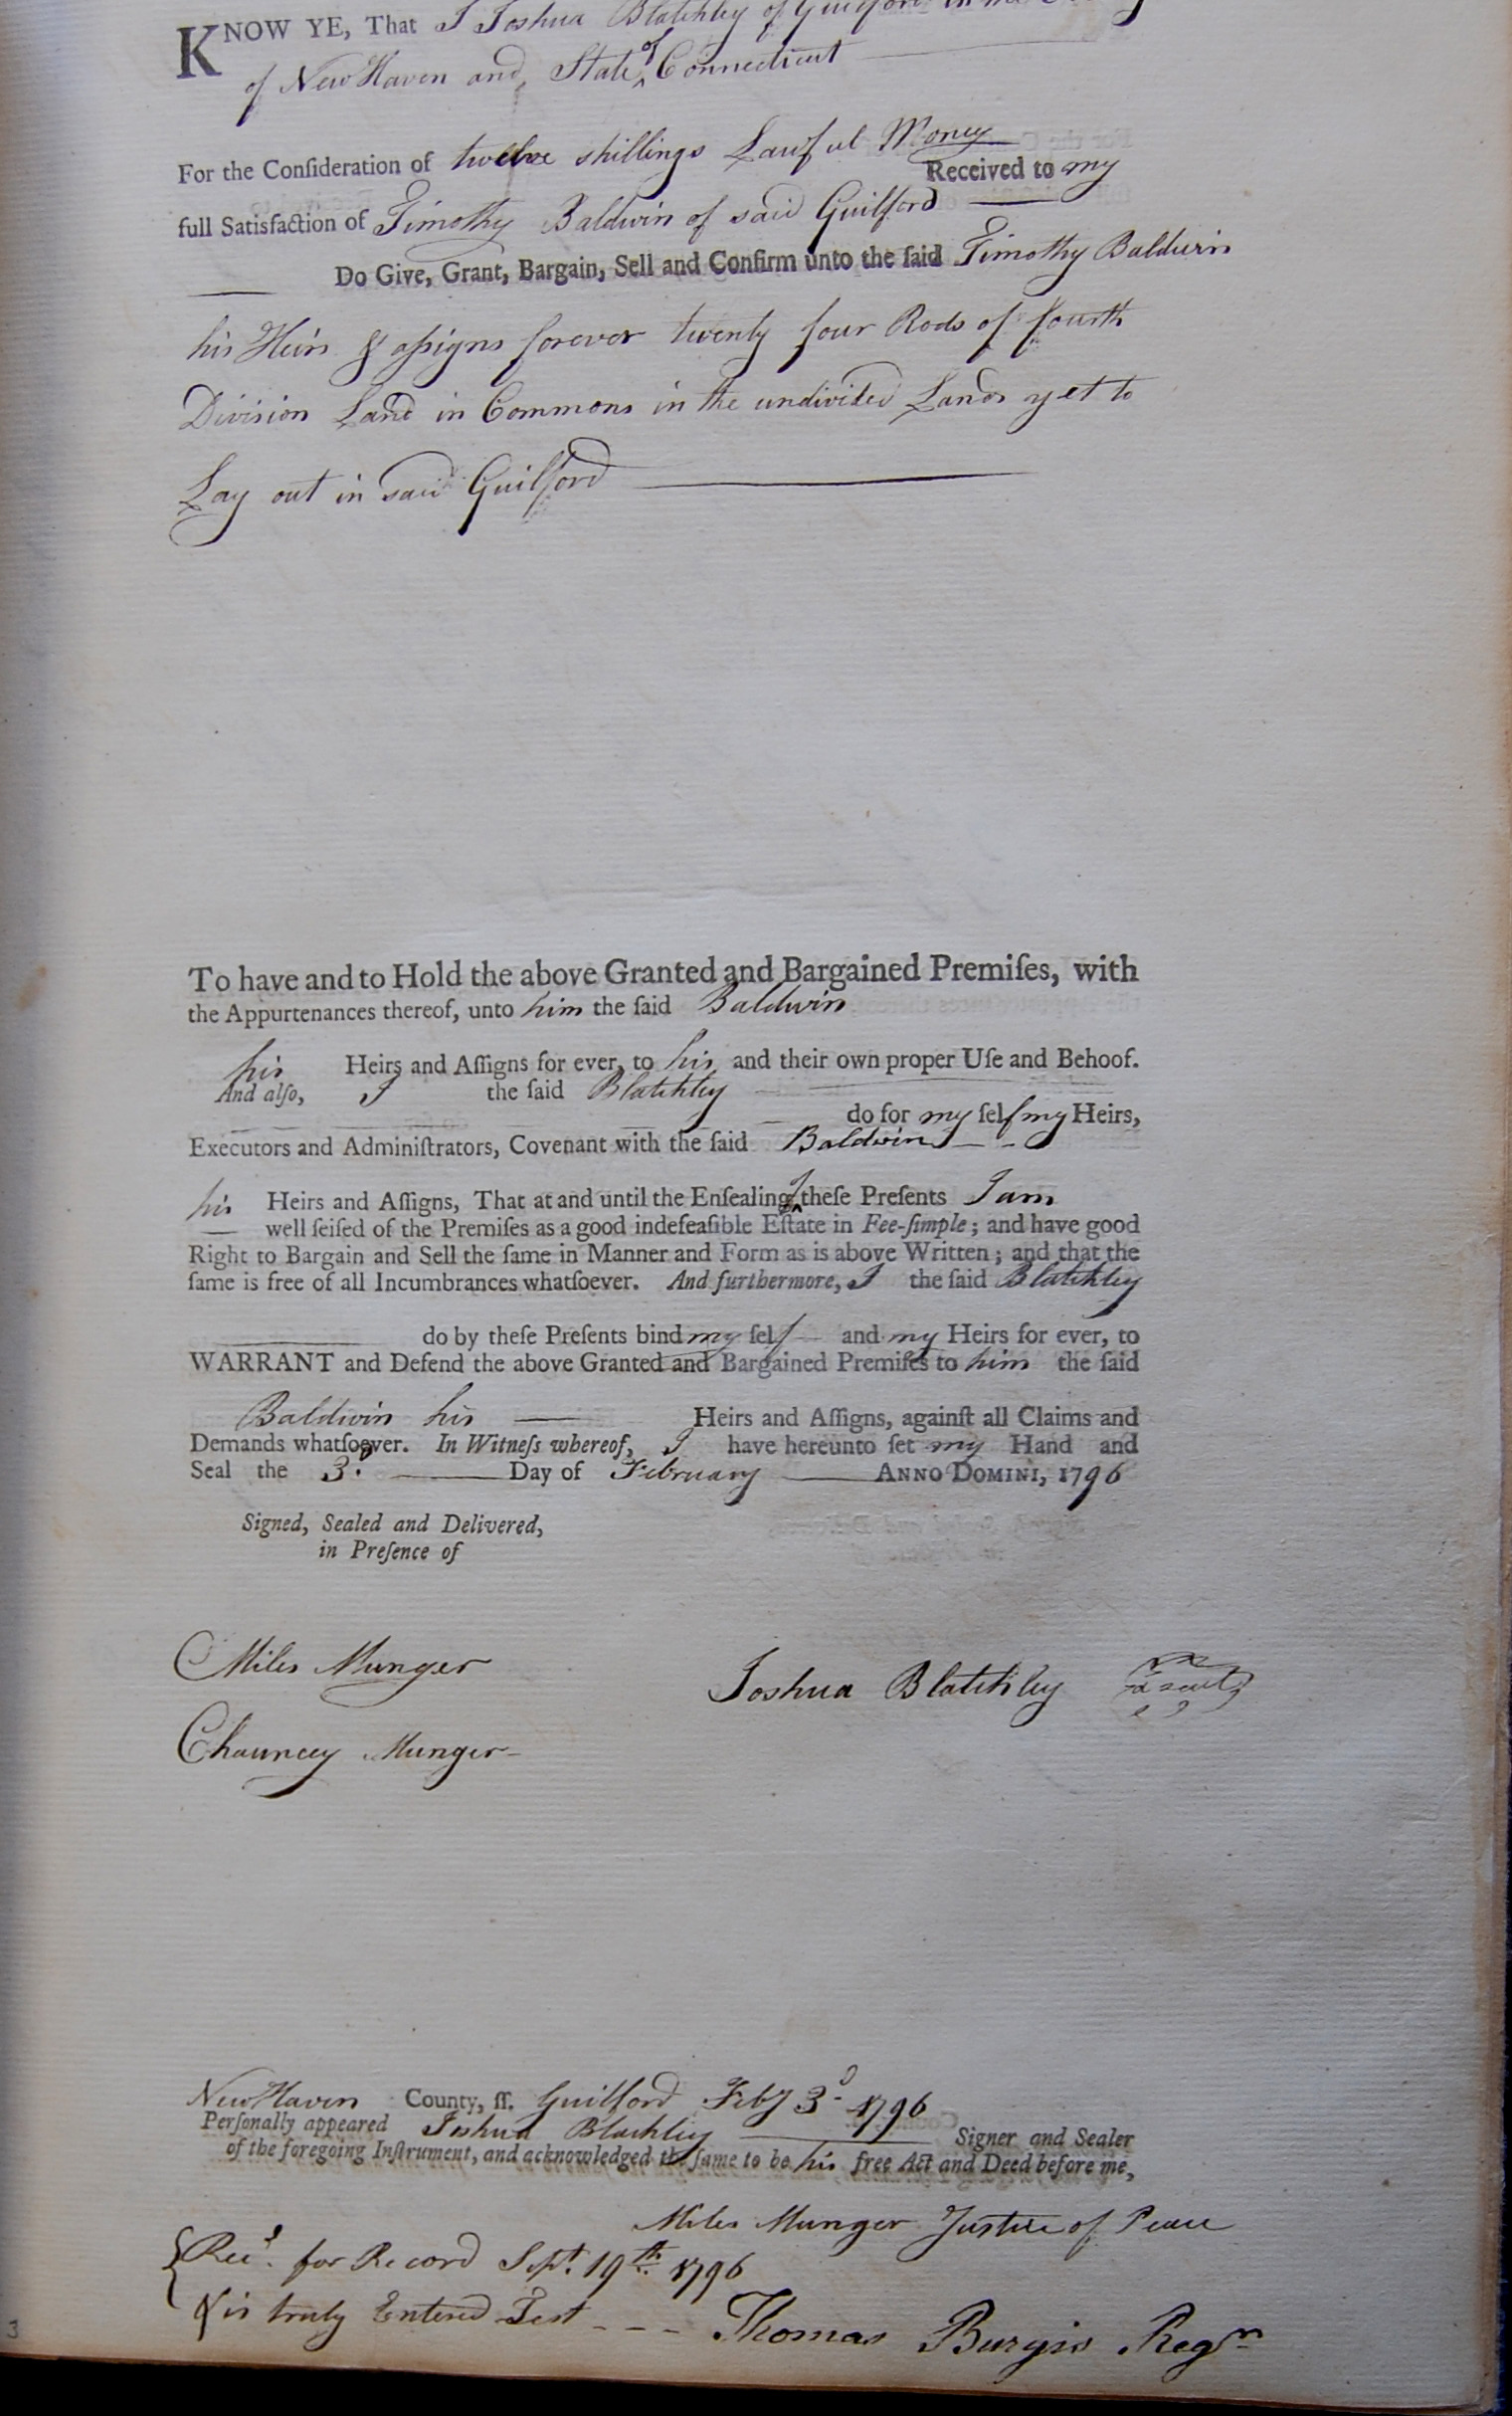 KNOW YE, That I Joshua Blatchley of Guilford in the
of New Haven and State of Connecticut
For the Conſideration of twelve shillings Lawful Money
Received to my
full Satisfaction of Timothy Baldwin of said Guilford
Do Give, Grant, Bargain, Sell and Confirm unto the ſaid Timothy Baldwin
his Heirs & aſsigns forever twenty four Rods of fourth
Division Land in Commons in the undivided Lands yet to
Lay out in said Guilford
To have and to Hold the above Granted and Bargained Premiſes, with
the Appurtenances thereof, unto him the ſaid Baldwin
his Heirs and Aſſigns for ever, to his and their own proper Uſe and Behoof.
And alſo, I the ſaid Blatchley
do for my ſelf my Heirs,
Executors and Adminiſtrators, Covenant with the ſaid Baldwin
his Heirs and Aſſigns, That at and until the Enſealing of theſe Preſents I am
well ſeiſed of the Premiſes as a good indefeaſible Eſtate in Fee-ſimple; and have good
Right to Bargain and Sell the ſame in Manner and Form as is above Written; and that the
ſame is free of all Incumbrances whatſoever. And furthermore, I the ſaid Blatchley
do by theſe Preſents bind my ſelf and my Heirs for ever, to
WARRANT and Defend the above Granted and Bargained Premiſes to him the ſaid
Baldwin his Heirs and Aſſigns, againſt all Claims and
Demands whatſoever. In Witneſs whereof, I have hereunto ſet my Hand and
Seal the 3d Day of February ANNO DOMINI, 1796
Signed, Sealed and Delivered,
in Preſence of
Miles Munger
Joshua Blatchley a seal
Chauncey Munger
New Haven County, ſſ. Guilford Feby 3d 1796
Perſonally appeared Joshua Blachley Signer and Sealer
of the foregoing Inſtrument, and acknowledged the ſame to be his free Act and Deed before me,
Miles Munger Justice of Peace
Recd. for Record Sept. 19th 1796
& is truly Entered Test - - - Thomas Burgis Regr